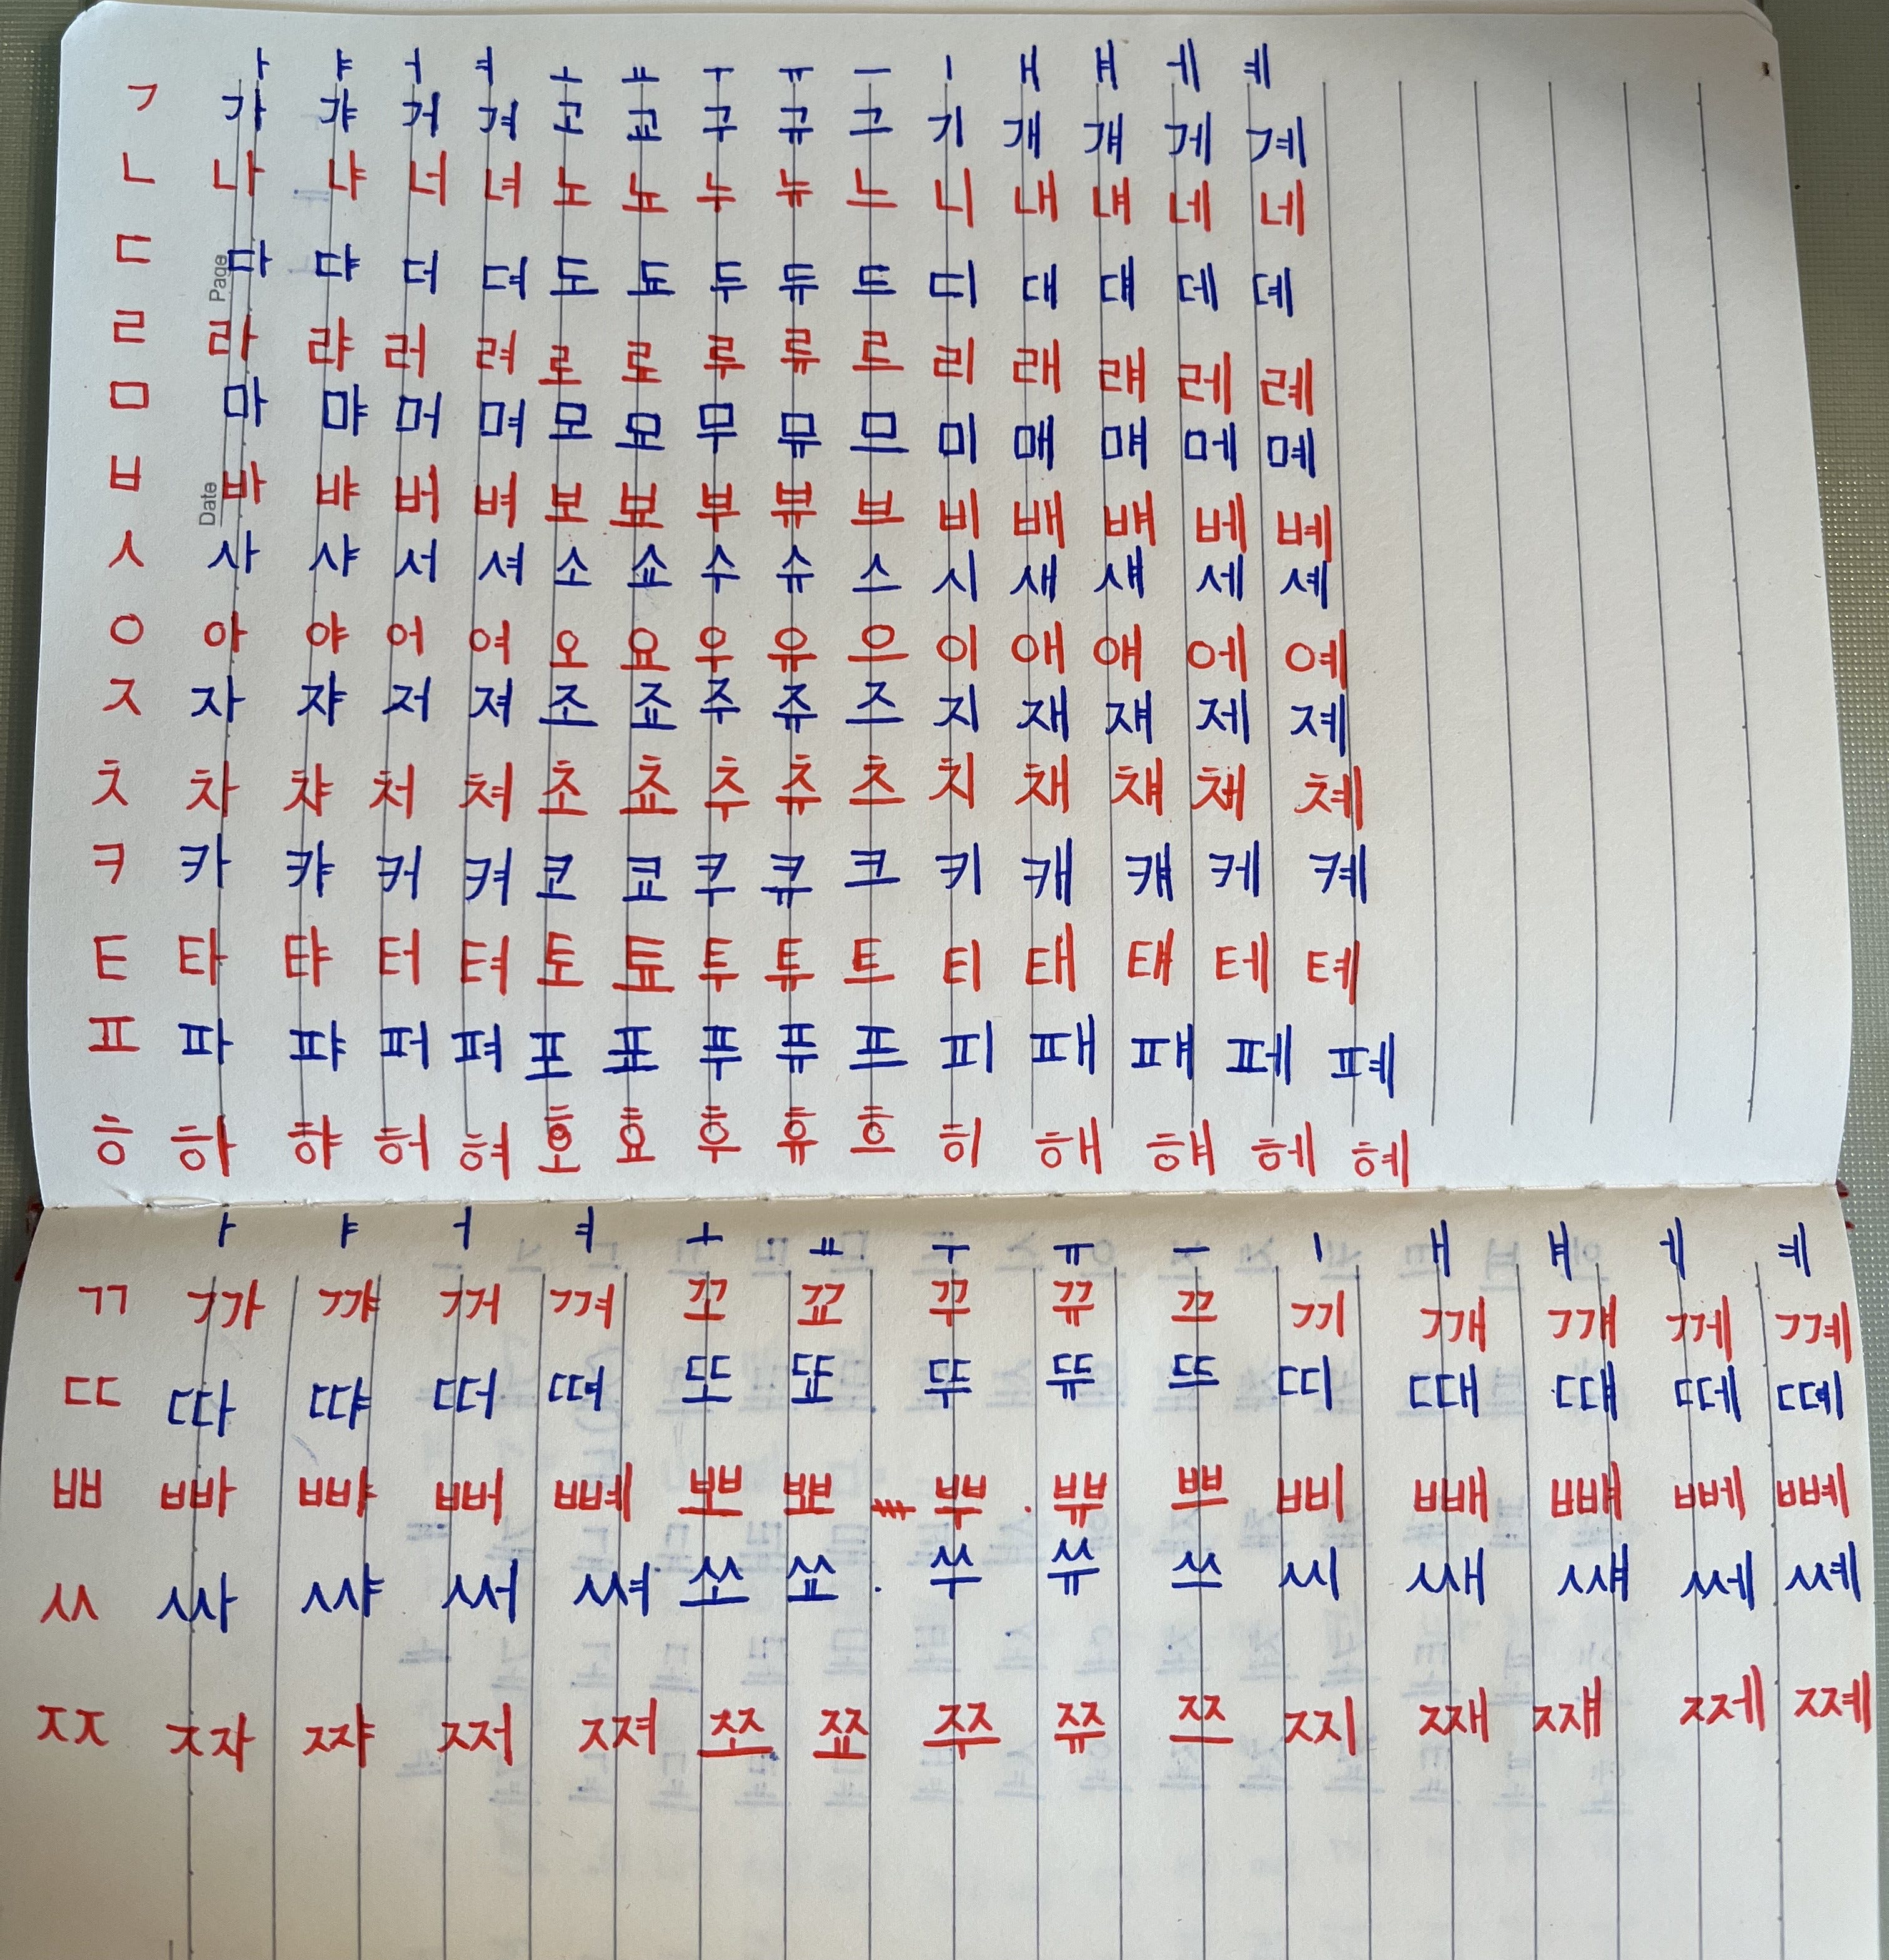 ㅏ ㅑ ㅓ ㅕ ㅗ ㅛ ㅜ ㅠ ㅡ ㅣ ㅐ ㅒ ㅔ ㅖ
ㄱ 가 갸 거 겨 고 교 구 규 그 기 개 걔 게 계
ㄴ 나 냐 너 녀 노 뇨 누 뉴 느 니 내 냬 네 네
ㄷ 다 댜 더 뎌 도 됴 두 듀 드 디 대 댸 데 뎨
ㄹ 라 랴 러 려 로 로 루 류 르 리 래 럐 레 례
ㅁ 마 먀 머 며 모 묘 무 뮤 므 미 매 먜 메 몌
ㅂ 바 뱌 버 벼 보 뵤 부 뷰 브 비 배 뱨 베 볘
ㅅ 사 샤 서 셔 소 쇼 수 슈 스 시 새 섀 세 셰
ㅇ 아 야 어 여 오 요 우 유 으 이 애 얘 에 예
ㅈ 자 쟈 저 져 조 죠 주 쥬 즈 지 재 쟤 제 졔
ㅊ 차 챠 처 쳐 초 쵸 추 츄 츠 치 채 챼 채 쳬
ㅋ 카 캬 커 켜 코 쿄 쿠 큐 크 키 캐 컈 케 켸
ㅌ 타 탸 터 텨 토 툐 투 튜 트 티 태 턔 테 톄
ㅍ 파 퍄 퍼 펴 포 표 푸 퓨 프 피 패 퍠 페 폐
ㅎ 하 햐 허 혀 호 효 후 휴 흐 히 해 햬 헤 혜
Page
Date
ㅏ ㅑ ㅓ ㅕ ㅗ ㅛ ㅜ ㅠ ㅡ ㅣ ㅐ ㅒ ㅔ ㅖ
ㄲ 까 꺄 꺼 껴 꼬 꾜 꾸 뀨 끄 끼 깨 꺠 께 꼐
ㄸ 따 땨 떠 뗘 또 뚀 뚜 뜌 뜨 띠 때 떄 떼 뗴
ㅃ 빠 뺘 뻐 뼤 뽀 뾰 뿌 쀼 쁘 삐 빼 뺴 뻬 뼤
ㅆ 싸 쌰 써 쎠 쏘 쑈 쑤 쓔 쓰 씨 쌔 썌 쎄 쎼
ㅉ 짜 쨔 쩌 쪄 쪼 쬬 쭈 쮸 쯔 찌 째 쨰 쩨 쪠